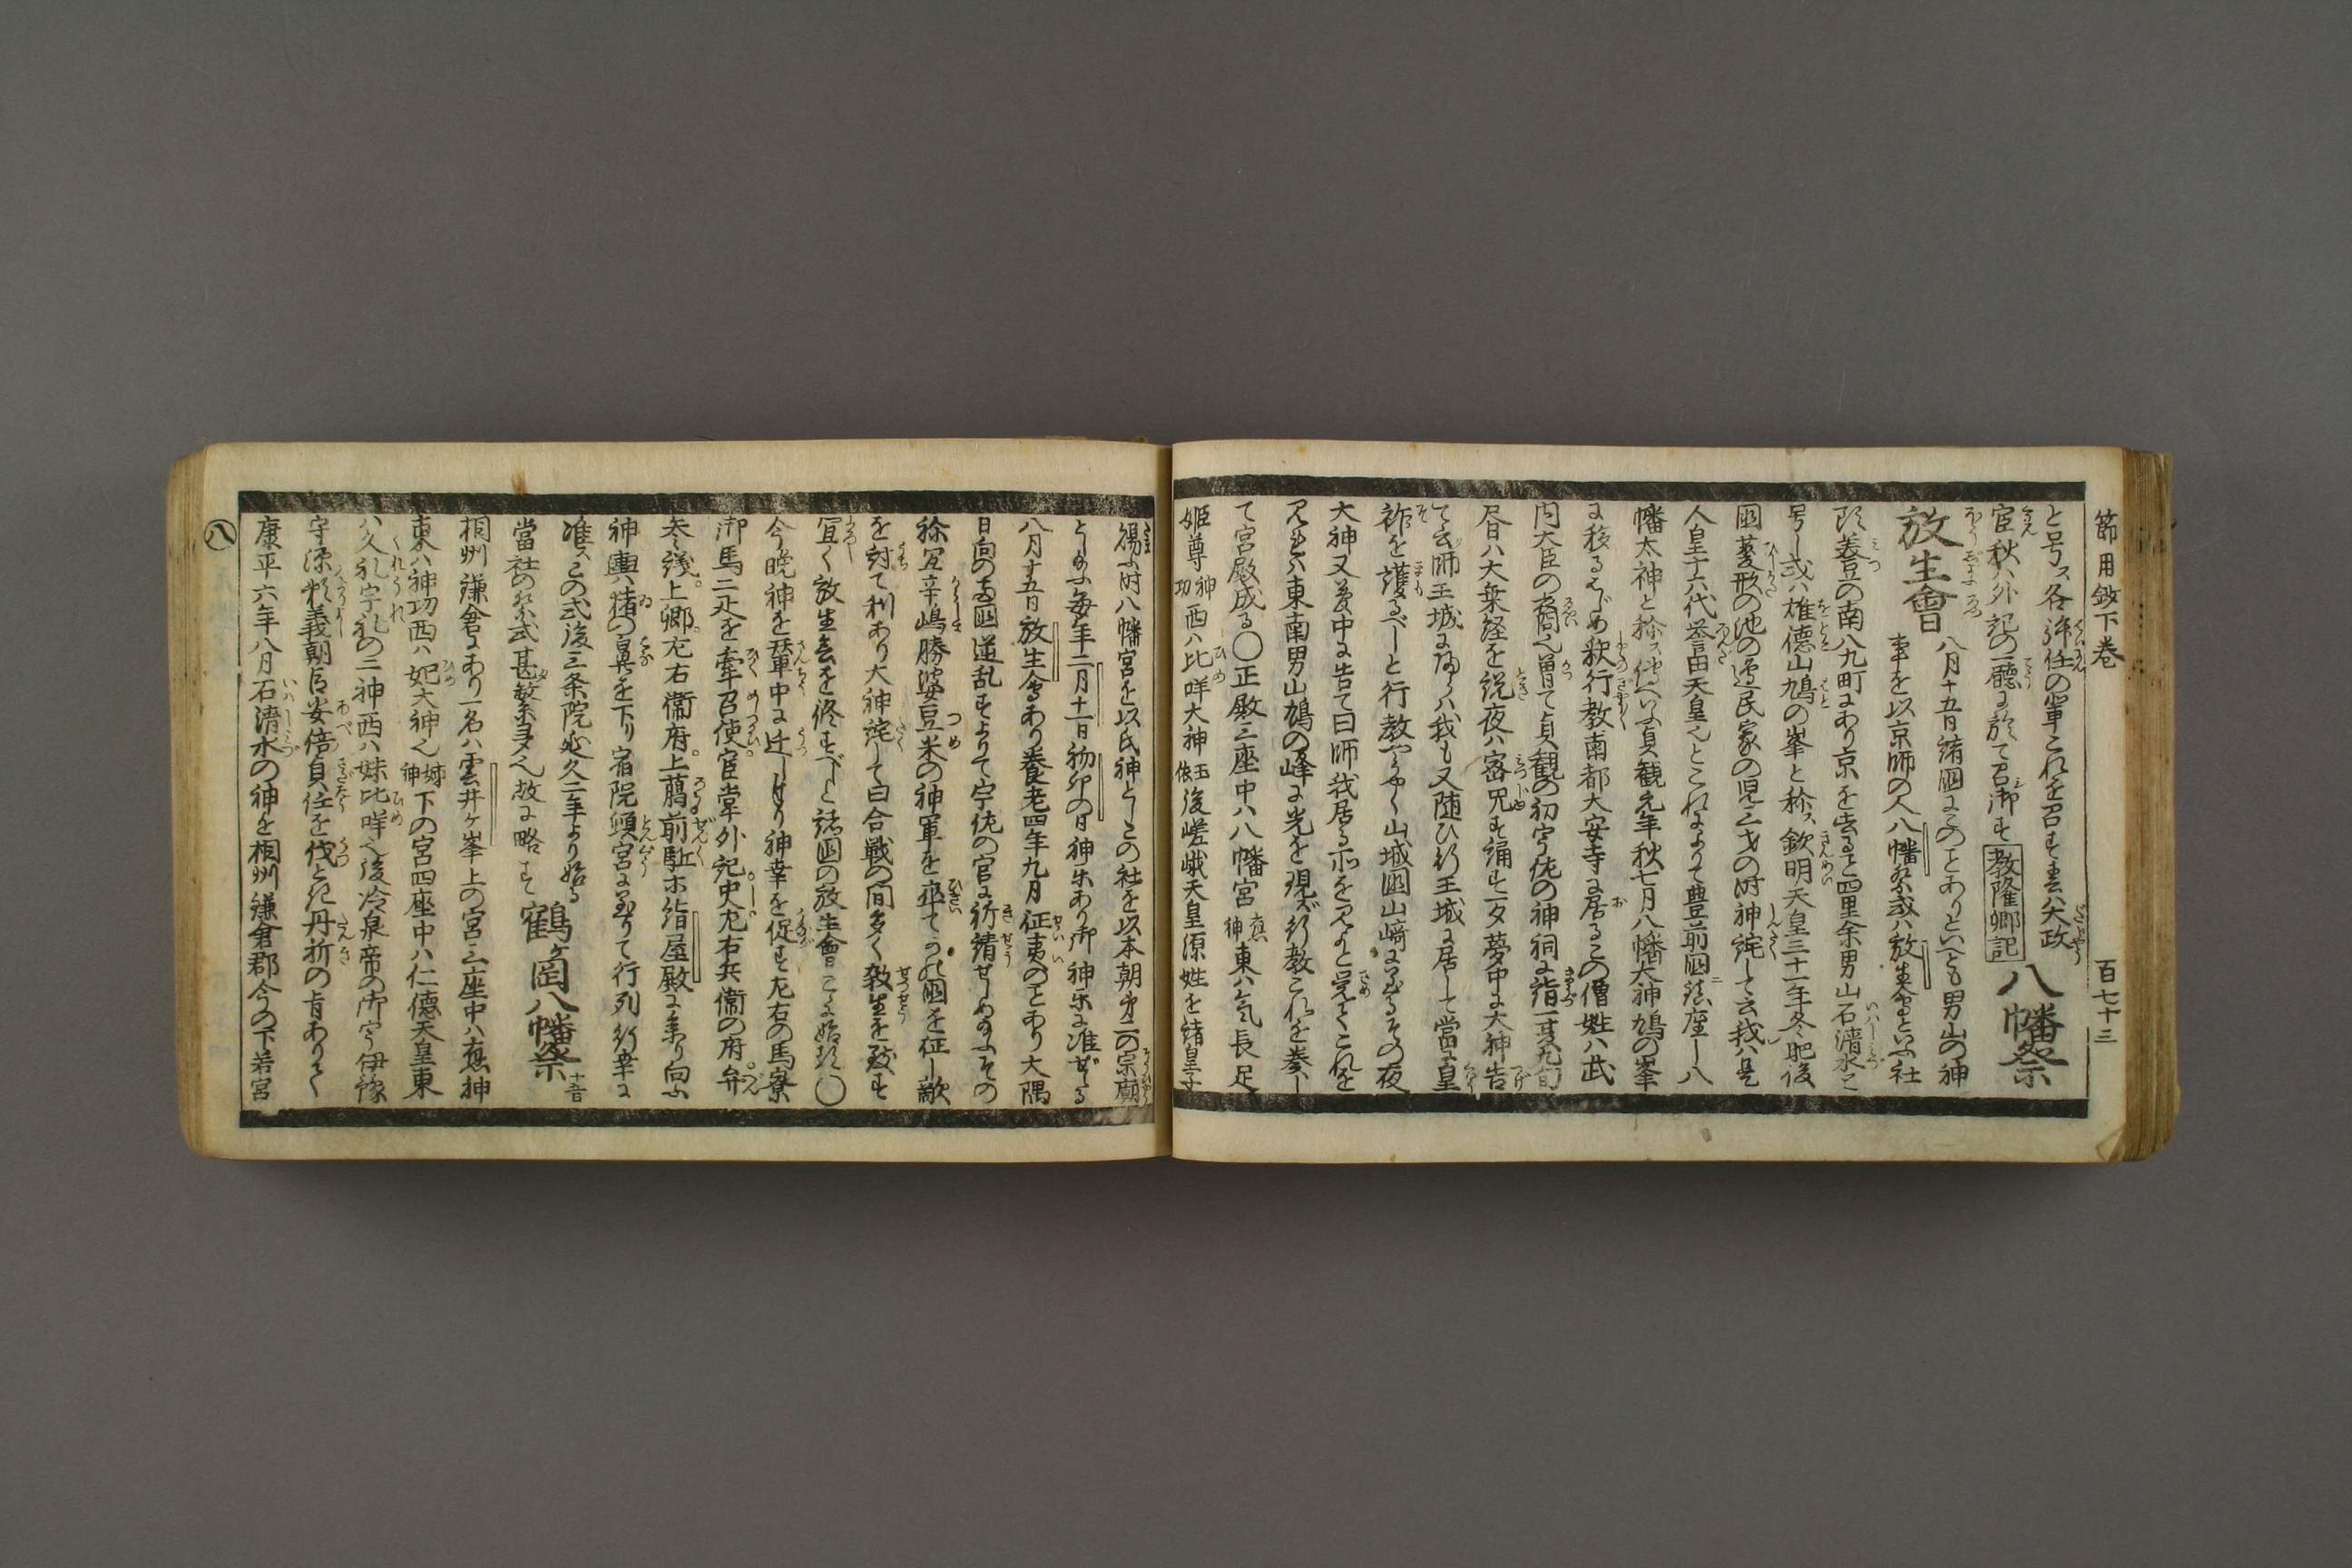 節用敓下卷
百七十三
と号ス各許任の輩これを召す春ハ大政
官秋ハ外記の廳に於て召御す 教隆卿記 八幡祭
放生會 八月十五日諸國にこのとありといへども男山の神
事を以京師の人八幡祭或ハ放生會といふ社
頭美豆の南八九町にあり京を去ると四里余男山石清水と
号し或ハ雄德山鳩の峯と称ス欽明天皇三十一年冬肥後
國菱形の池の邊民家の児三才の时神詫して云我ハ是
人皇十六代誉田天皇也とこれによりて豊前國ニ鎮座し八
幡太神と称ス傳へいふ貞観元年秋七月八幡大神鳩の峯
に移るはじめ釈行教南都大安寺に居るこの僧姓ハ武
内大臣の裔也曽て貞観の初宇佐の神祠に詣一夏九旬
昼ハ大乗経を説夜ハ密咒を誦す一夕夢中に大神告
て云師王城に帰らハ我も又随ひ行王城に居して當に皇
祚を護るべしと行教やうやく山城國山﨑に至るその夜
大神又夢中に告て曰師我居る所を見よと覚てこれを
見れハ東南男山鳩の峰に光を現ず行教これを奏し
て宮殿成る〇正殿三座中ハ八幡宮 應神 東ハ気長足
姫尊 神功 西ハ比咩大神 玉依 後嵯峨天皇源姓を諸皇子に
賜ふ时八幡宮を以氏神としこの社を以本朝第二の宗廟
とし給ふ毎年二月十一日初卯の日神楽あり御神楽に准ずる
八月十五日放生會あり養老四年九月征夷のとあり大隅
日向の両國逆乱すよりて宇佐の官に祈請せしめ給ふその
祢宜辛嶋勝婆豆米の神軍を率てかの國を征し敵
を討て利あり大神詫して曰合戦の间多く殺生を致す
宜く放生會を修すべしと諸國の放生會こゝに始れ〇
今晩神を輦中に迁しけり神幸を促す左右の馬寮
御馬二疋を牽召使官掌外記史左右兵衞の府弁
参议上卿左右衞府上﨟前駈ホ绢屋殿に来り向ふ
神輿ハ猪の鼻を下り宿院頓宮に至りて行列行幸に
准スこの式後三条院延久二年より始る
當社の祭式甚繁多也故に略す 鶴ケ岡八幡祭 十五日
相州鎌倉にあり一名ハ雲井ケ峯上の宮三座中ハ應神
東ハ神功西ハ妃大神也 姉神 下の宮四座中ハ仁德天皇東
ハ久礼宇礼の二神西ハ妹比咩也後冷泉帝の御宇伊豫
守源頼義朝臣安倍貞任を伐とき丹祈の㫖ありて
康平六年八月石清水の神を相州鎌倉郡今の下若宮
八